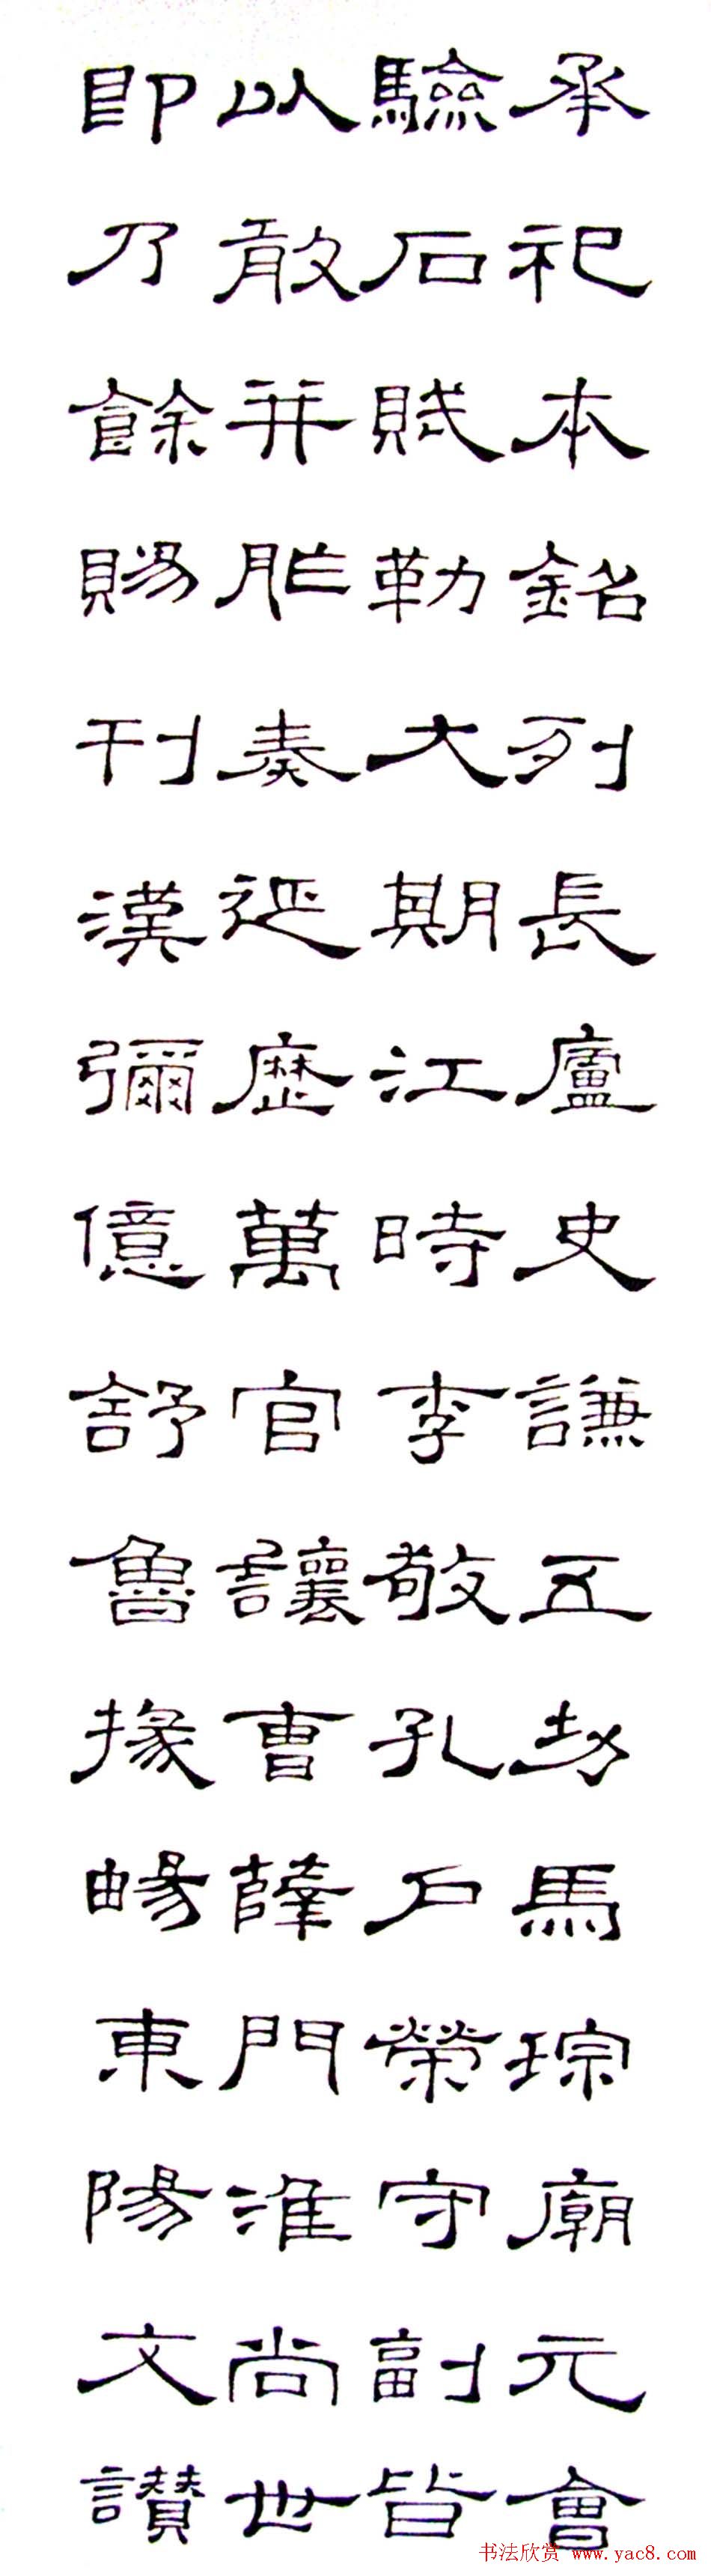 承祀本銘列長廬史謙五功馬琮廟元會
驗石賦勒大期江時李敬孔戶榮守副皆
以敢并胙奏延歷萬官讓曹薛門淮尚世
即乃餘賜刊漢彌億舒魯掾暢東陽文讚
书法欣赏 www.yac8.com